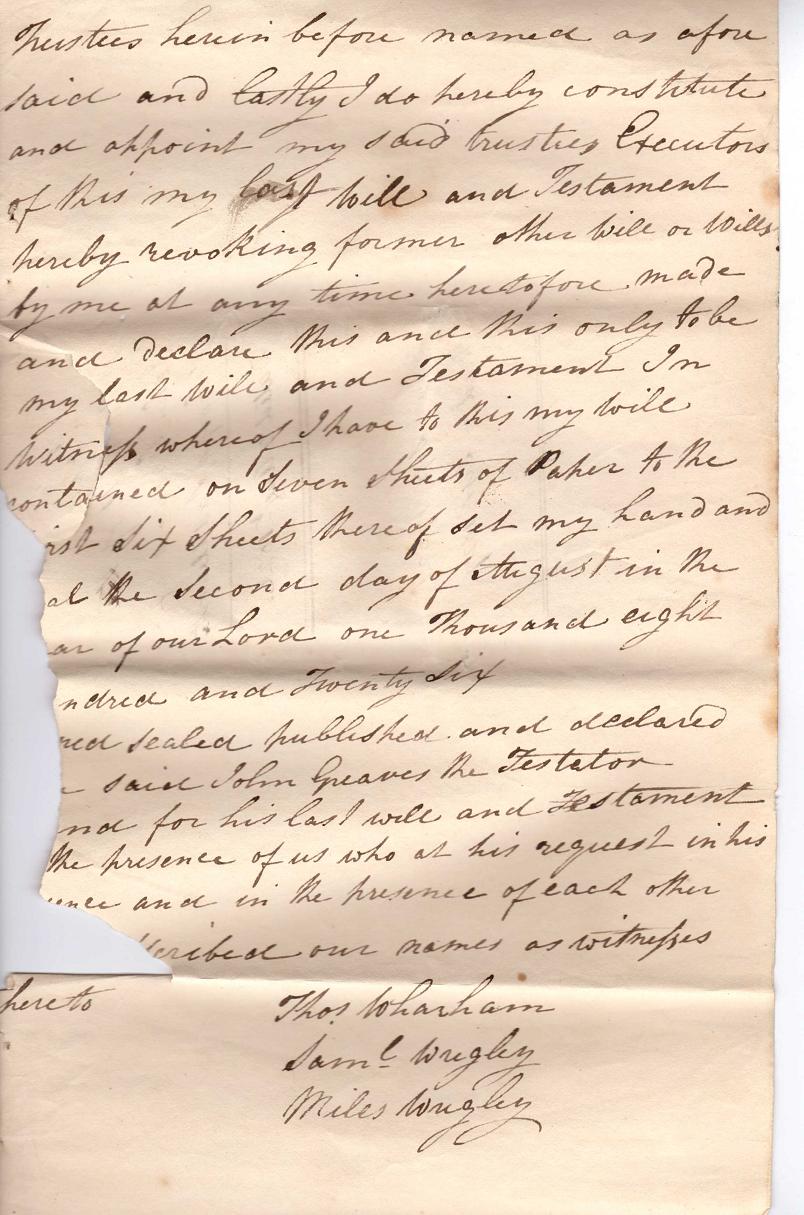 Trustees herein before named as afore
said and lastly I do hereby constitute
and appoint my said trustees Executors
of this my last Will and Testament
hereby revoking former other Will or Wills
by me at any time heretofore made
and declare this and this only to be
my last Will and Testament In
Witness whereof I have to this my Will
contained on Seven Sheets of Paper to the
irst Six Sheets thereof set my hand and
al the Second day of August in the
ar of our Lord one Thousand eight
ndred and Twenty Six
red sealed published and declared
said John Greaves the Testator
nd for his last will and Testament
the presence of us who at his request in his
ence and in the presence of each other
scribed our names as witnesses
thereto
Thos Wharham
Saml Wrigley
Miles Wrigley